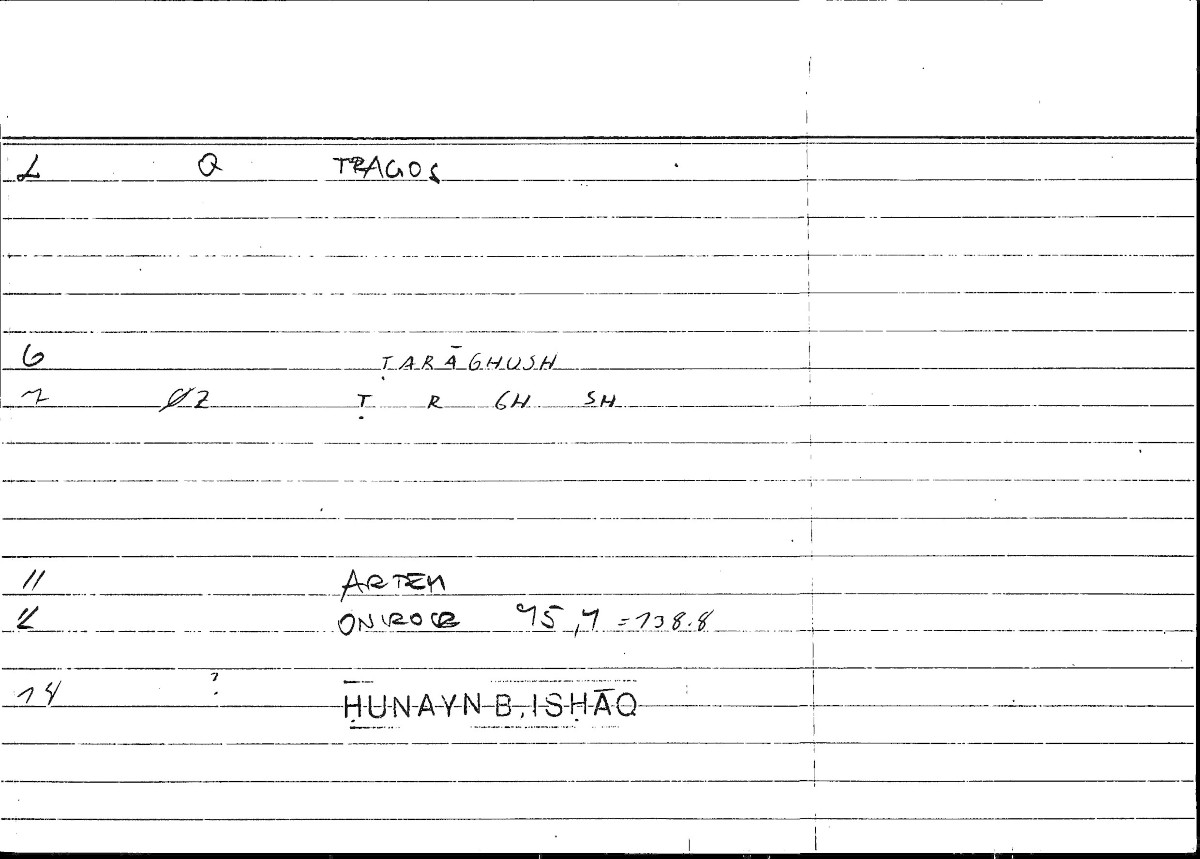 1 Q TRAGOS
6 ṬARĀGHUSH
7 ØZ Ṭ R GH SH
11 ARTEM
12 ONIROCR 45,7 = 138.8
14 ? ḤUNAYN B. ISḤĀQ